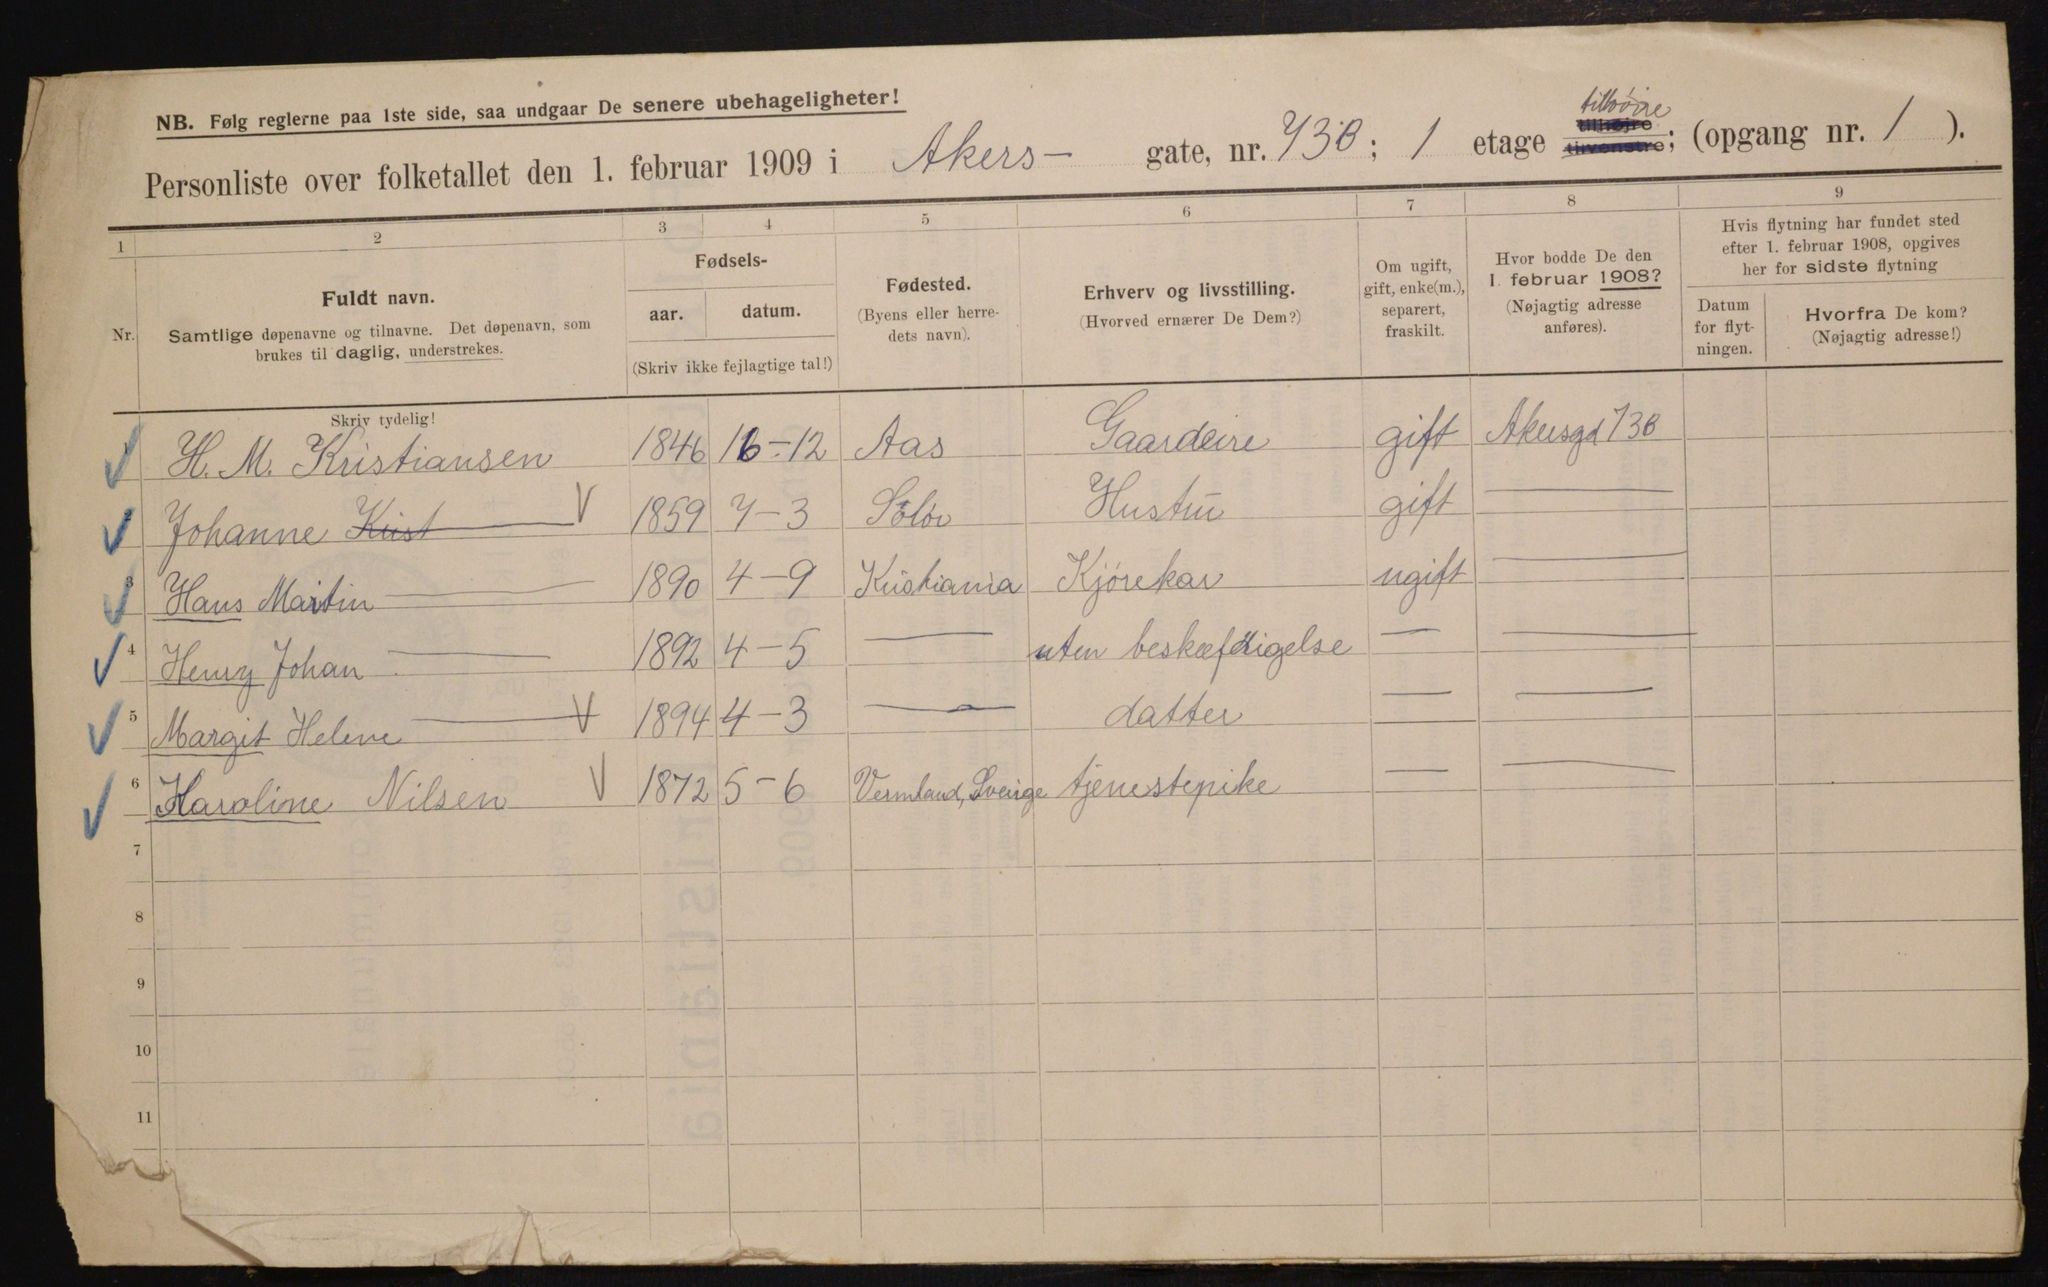 NB. Følg reglerne paa 1ste side, saa undgaar De senere ubehageligheter!
Personliste over folketallet den 1. februar 1909 i Akers- gate, nr. 73B; 1 etage tilhøire tilhøjre tilvenstre; (opgang nr. 1 ).
1 2 3 4 5 6 7 8 9
Nr.
Fuldt navn.
Samtlige døpenavne og tilnavne. Det døpenavn, som
brukes til daglig, understrekes.
Fødsels-
aar. datum.
(Skriv ikke fejlagtige tal!)
Fødested.
(Byens eller herre-
dets navn).
Erhverv og livsstilling.
(Hvorved ernærer De Dem?)
Om ugift,
gift, enke(m.),
separert,
fraskilt.
Hvor bodde De den
1. februar 1908?
(Nøjagtig adresse
anføres).
Hvis flytning har fundet sted
efter 1. februar 1908, opgives
her for sidste flytning
Datum
for flyt-
ningen.
Hvorfra De kom?
(Nøjagtig adresse!)
Skriv tydelig!
H. M. Kristiansen 1846 16-12 Aas Gaardeire gift Akersgd 73B
2 Johanne Krist — 1859 7-3 Solør Hustru gift —
3 Hans Martin — 1890 4-9 Kristiania Kjørekar ugift —
4 Henry Johan — 1892 4-5 — uten beskæftigelse — —
5 Margit Helene — 1894 4-3 — datter — —
6 Karoline Nilsen 1872 5-6 Vermland, Sverige tjenestepike — —
7
8
9
10
11